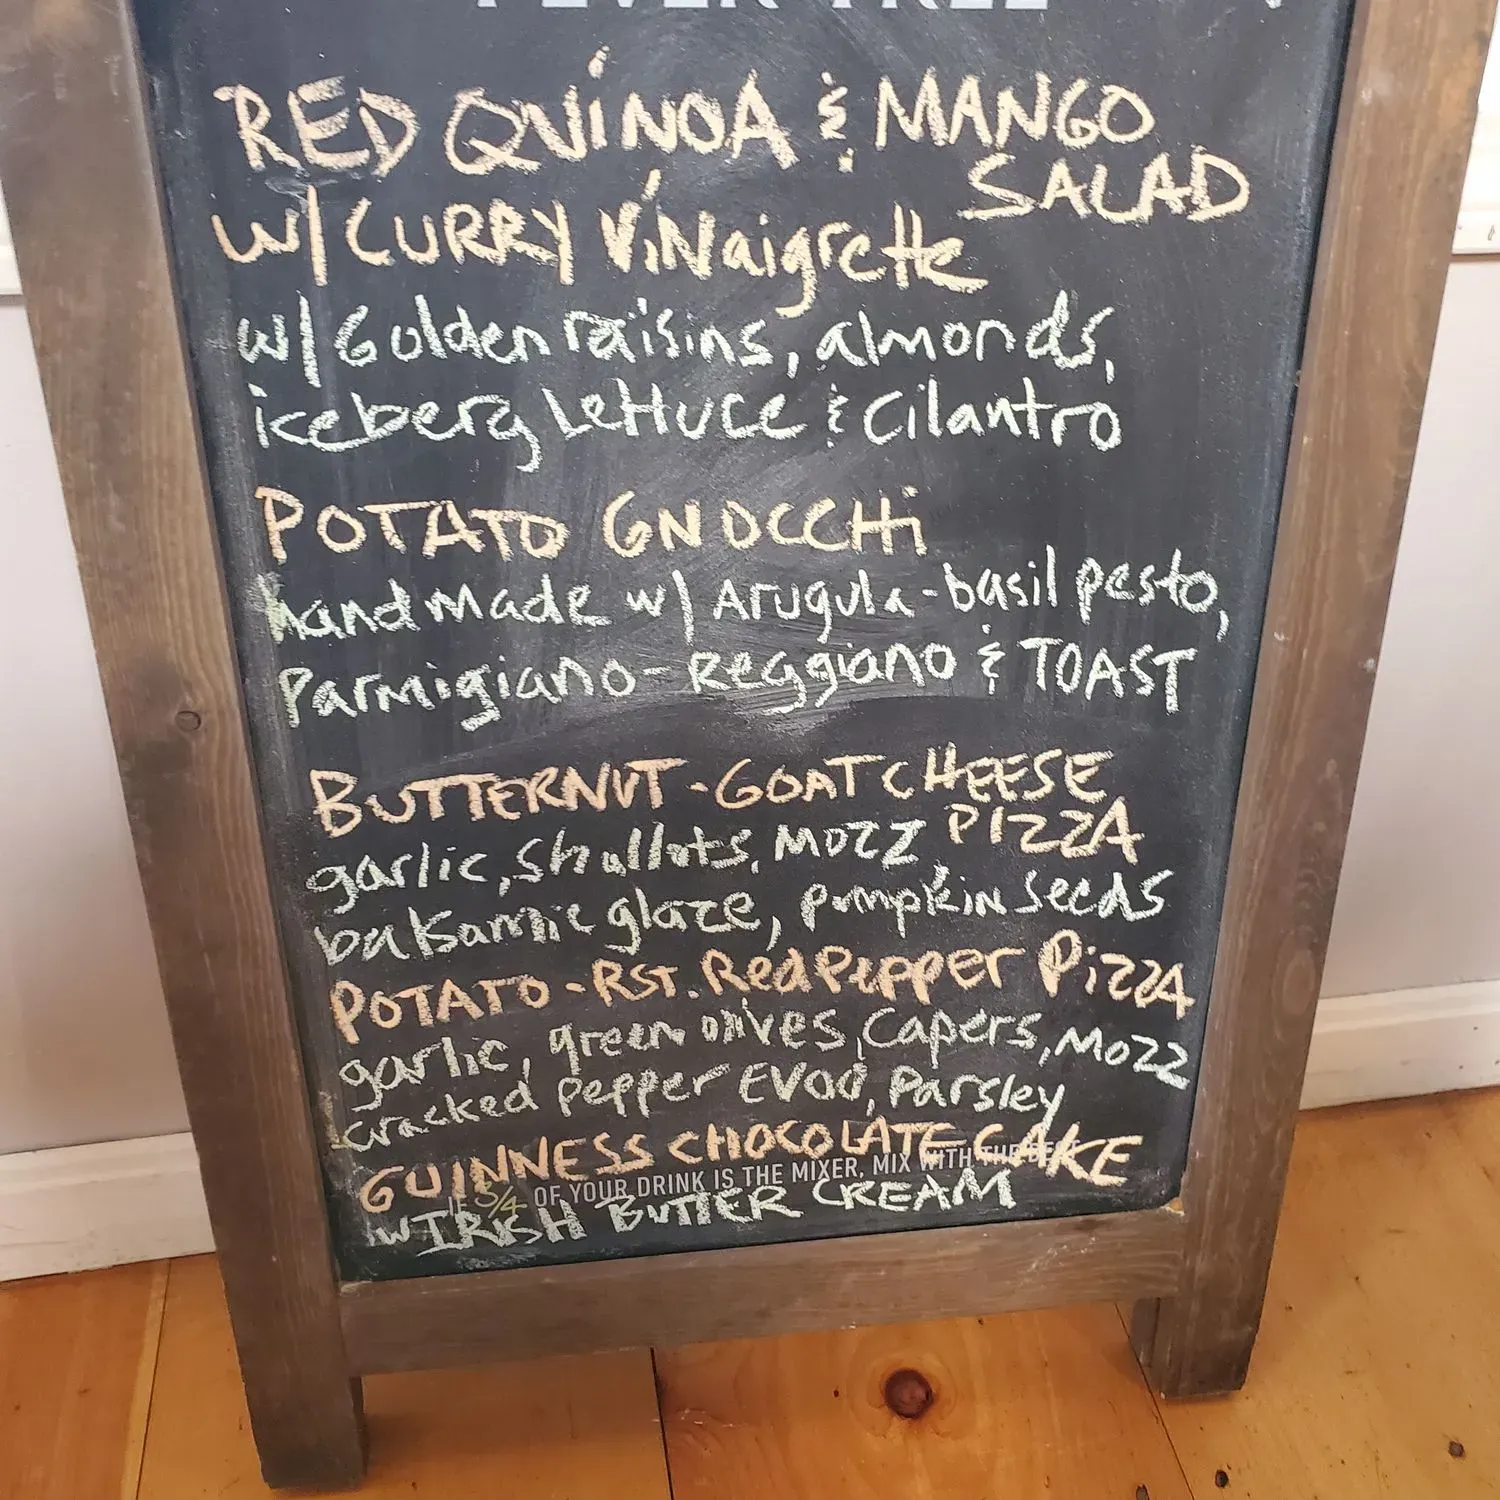 FEVER-TREE
RED QUINOA & MANGO
SALAD
W/ CURRY ViNaigrette
w/ Golden raisins, almonds,
iceberg Lettuce & Cilantro
POTATO GNOCCHi
handmade w/ Arugula-basil pesto,
Parmigiano-Reggiano & TOAST
BUTTERNUT-GOAT CHEESE
PIZZA
garlic, Shallots, MOZZ
balsamic glaze, pumpkin Seeds
POTATO-RST. Red Pepper PiZZA
garlic, green olives, Capers, MOZZ
cracked pepper EVOO, Parsley
GUINNESS CHOCOLATE CAKE
IF 3/4 OF YOUR DRINK IS THE MIXER, MIX WITH THE BEST
W IRISH BUTTER CREAM